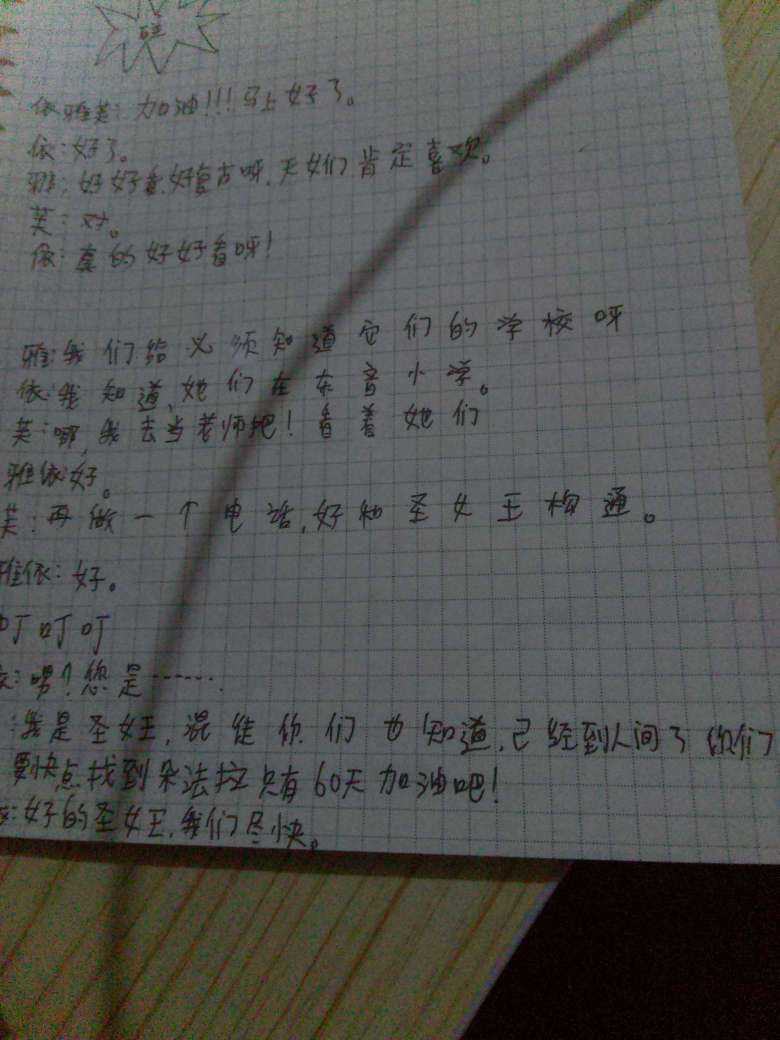 依雅芙:加油!!!马上好了。
依:好了。
雅:好好看,好复古呀,天女们肯定喜欢。
芙:对。
依:真的好好看呀!
雅:我们必须知道它们的学校呀
依:我知道,她们在东音小学。
芙:哪,我去当老师把!看着她们
雅依:好。
芙:再做一个电话,好和圣女王构通。
雅依:好。
叮叮叮
:喂?您是……
:我是圣女王,混徒你们也知道,已经到人间了你们
要快点找到朵法拉只有60天加油吧!
:好的圣女王,我们尽快。